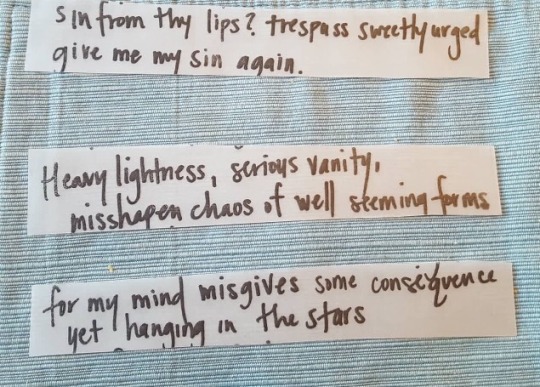 sin from thy lips? trespass sweetly urged
give me my sin again.
Heavy lightness, serious vanity,
misshapen chaos of well seeming forms
for my mind misgives some consequence
yet hanging in the stars